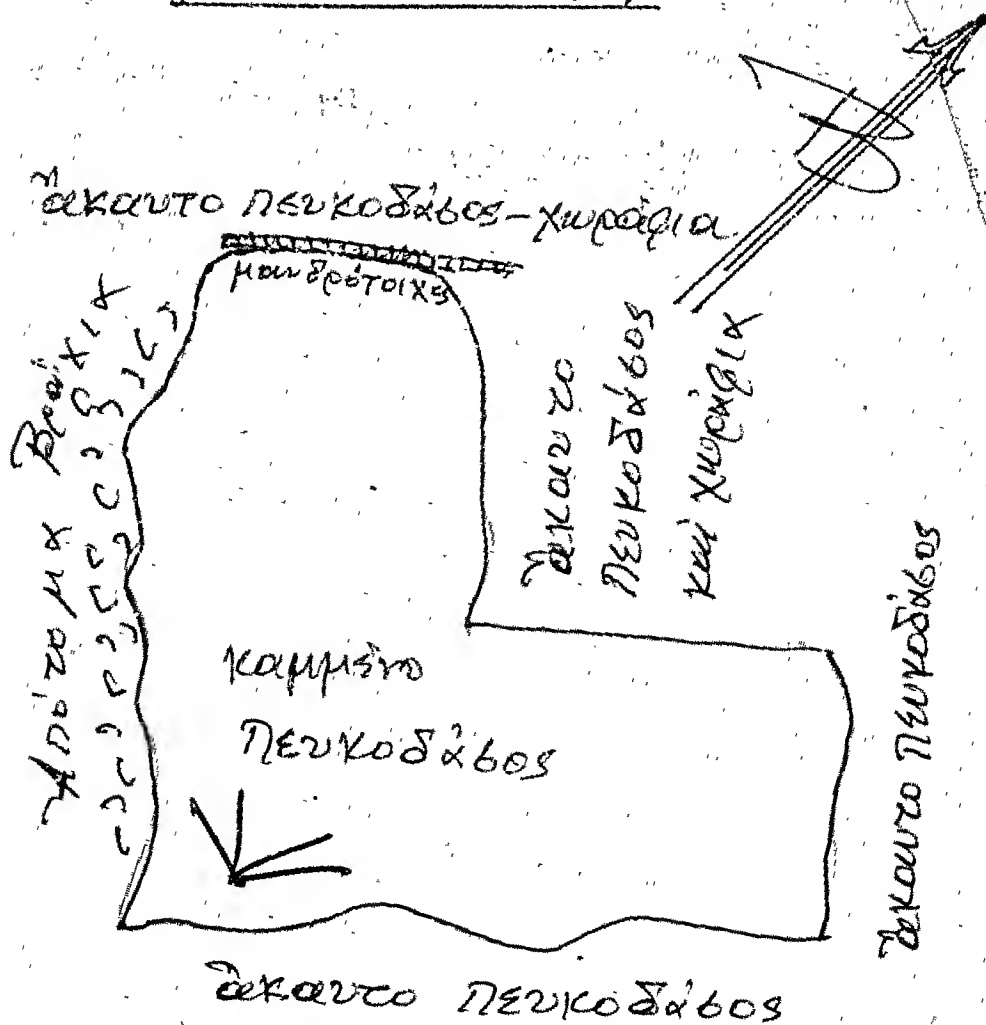 ἄκαυτο πευκοδάσος - χωράφια
μανδρότοιχος
Ἀπότομα Βράχια
ἄκαυτο
πευκοδάσος
καί χωράφια
καμμένο
πευκοδάσος
ἄκαυτο πευκοδάσος
ἄκαυτο πευκοδάσος